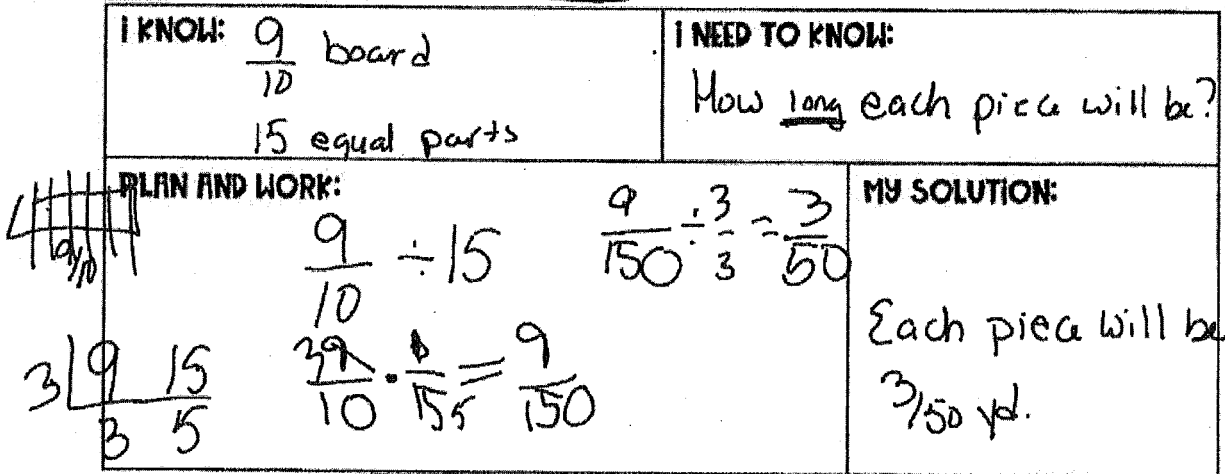 I KNOW:
9/10 board
15 equal parts
I NEED TO KNOW:
How long each piece will be?
PLAN AND WORK:
9/10
9/10 ÷ 15
9/150 ÷ 3/3 = 3/50
3 | 9 15
3 5
3 9/10 · 1/15 5 = 9/150
MY SOLUTION:
Each piece will be
3/50 yd.